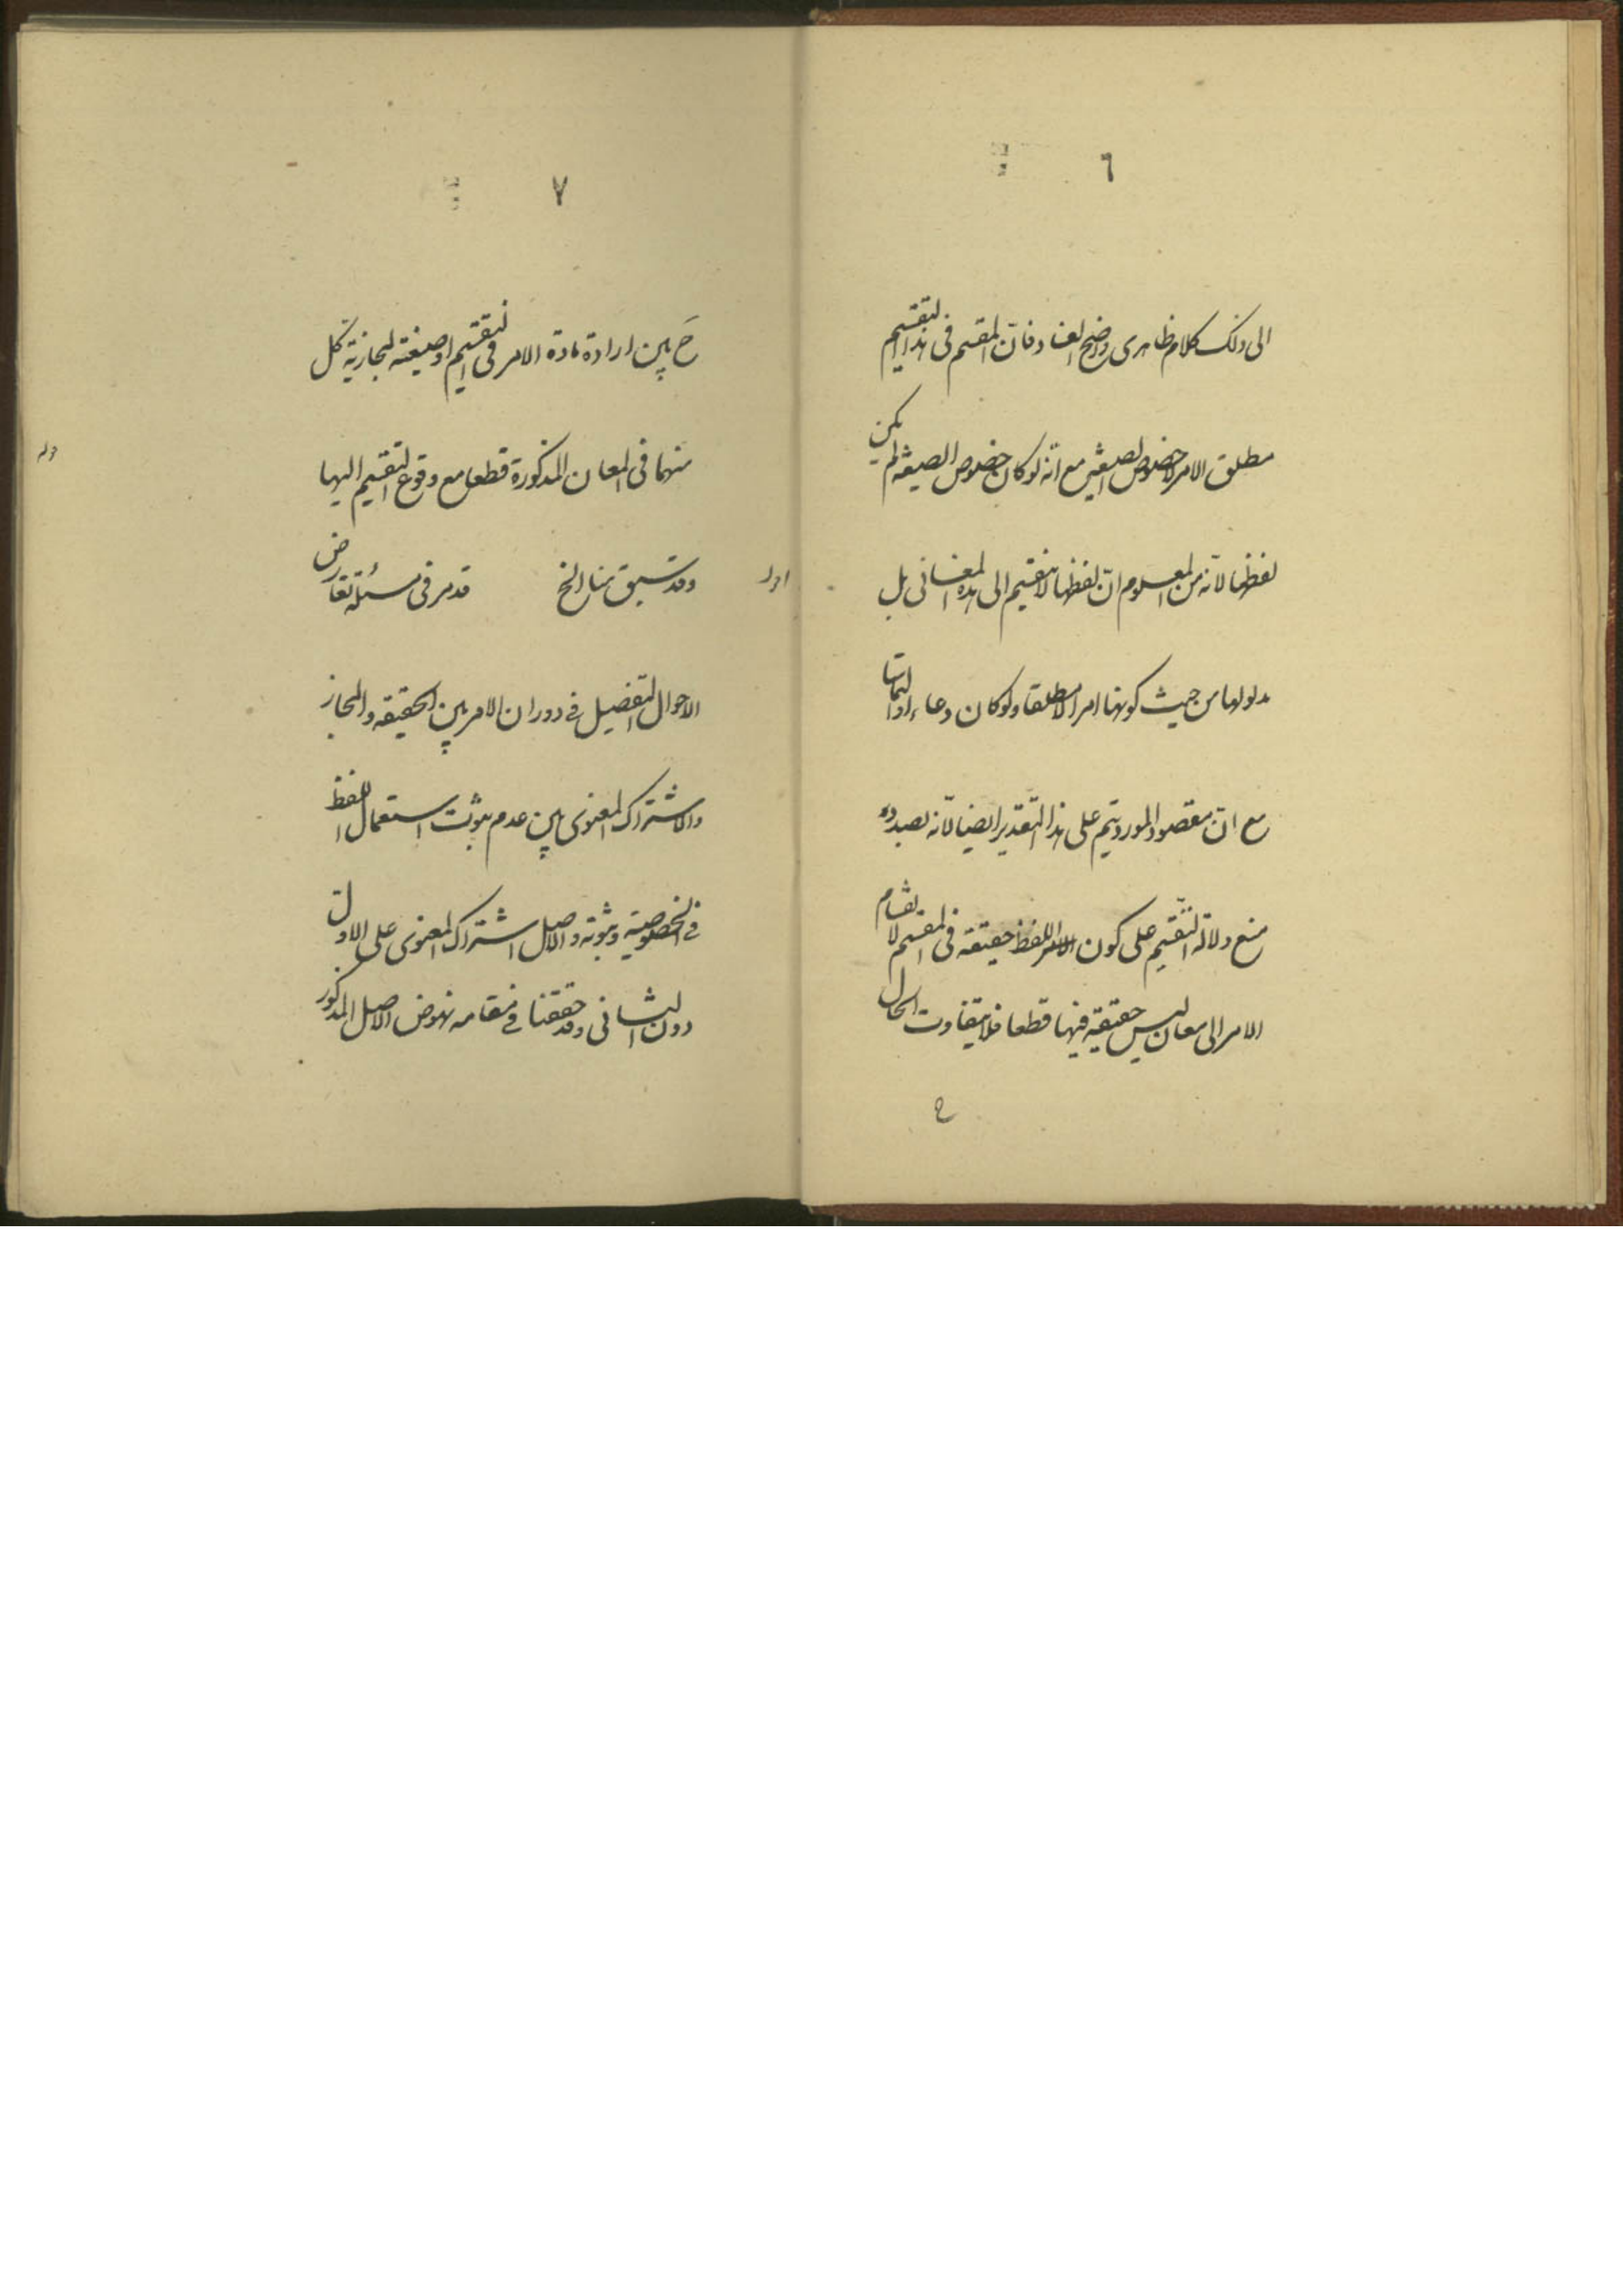 ٦
الى ذلك كلام ظاهرى واضح الفساد فانّ المقسم فى هذا التقسيم
مطلق الامر لا خصوص الصيغة مع انّه لو كان خصوص الصيغة لم يكن
لفظها لانّه من المعلوم انّ لفظها لا ينقسم الى هذه المعانى بل
مدلولها من حيث كونها امرا مطلقا ولو كان دعاء او التماسا
مع انّ مقصود المورد يتم على هذا التقدير ايضا لانّه بصدده
منع دلالة التقسيم على كون اللفظ حقيقة فى المقسم لانقسام
الامر الى معان ليس حقيقة فيها قطعا فلا يتفاوت الحال
٧
ح بين ارادة مادة الامر فى التقسيم او صيغته لمجازية كل
منهما فى المعان المذكورة قطعا مع وقوع التقسيم اليها
وقد سبق منا الخ قد مر فى مسئلة تعارض
الاحوال التفصيل فى دوران الامر بين الحقيقه والمجاز
والاشتراك المعنوى بين عدم ثبوت استعمال اللفظ
فى الخصوصية وثبوته والاصل اشتراك المعنوى على الاول
دون الثانى وقد حققنا فى مقامه نهوض الاصل المذكور